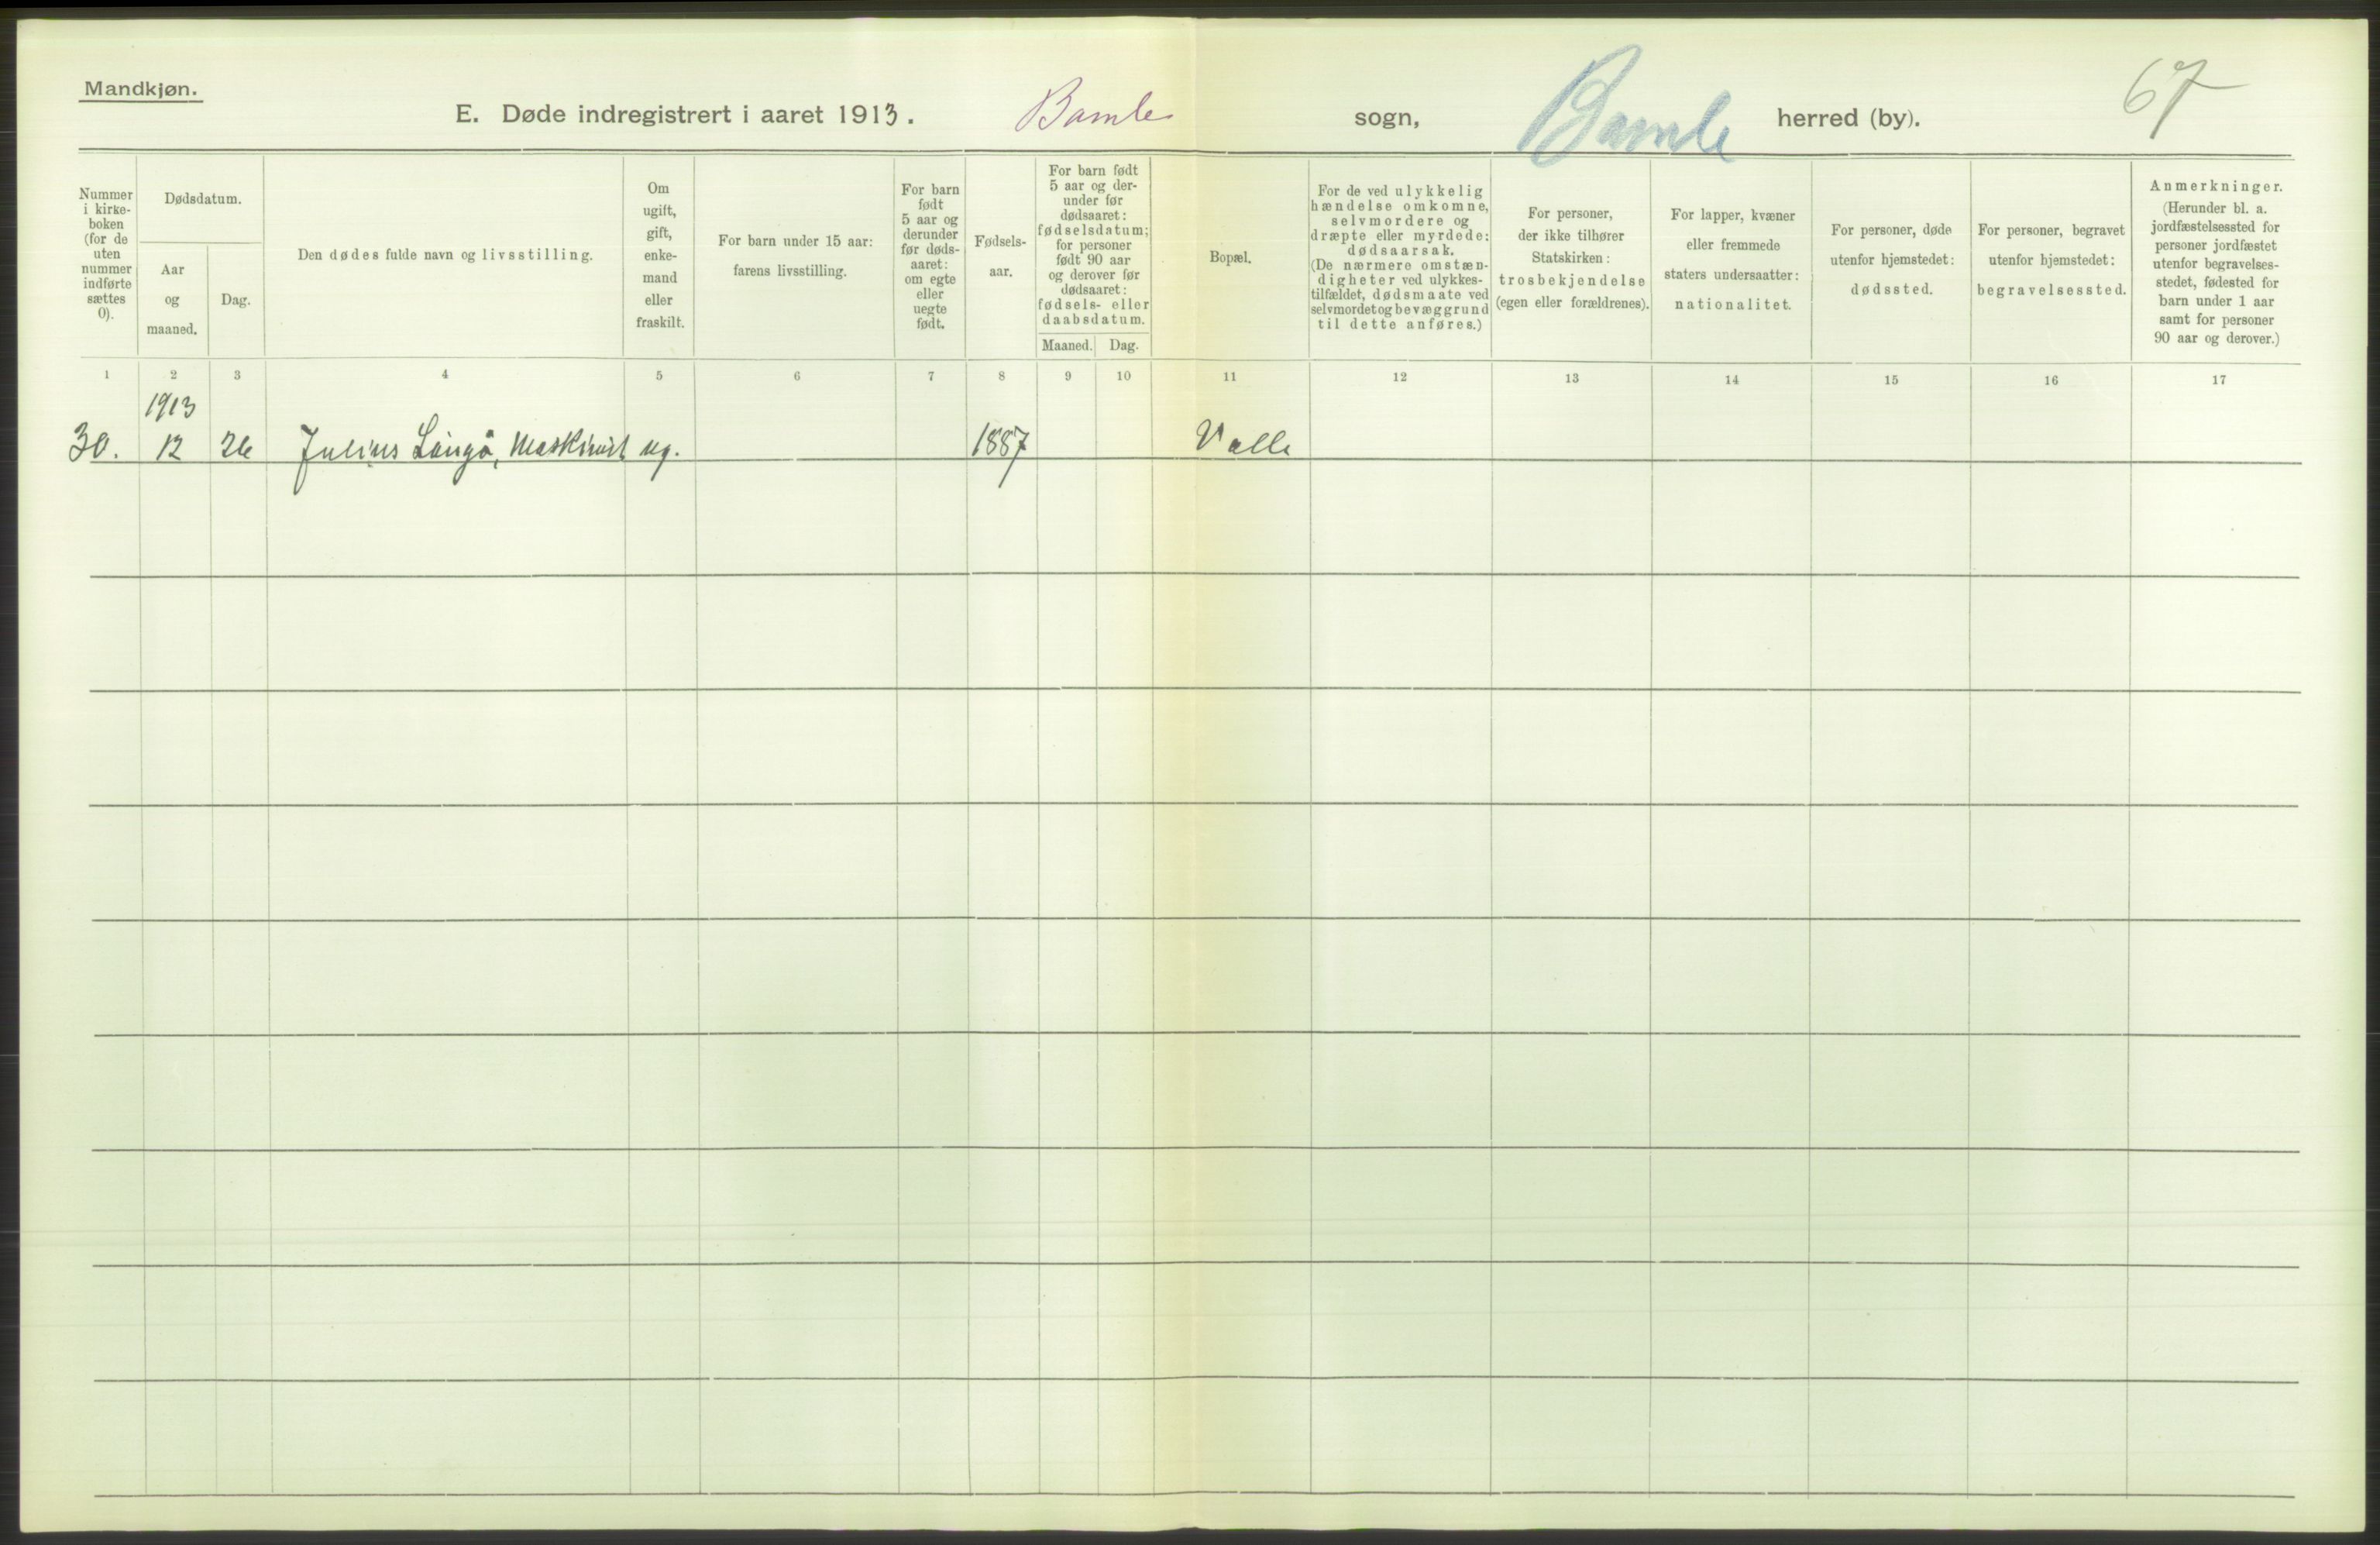 Mandkjøn.
E. Døde indregistrert i aaret 1913. Bamle sogn, Bamle herred (by).
67
Nummer
i kirke-
boken
(for de
uten
nummer
indførte
sættes
0).
Dødsdatum.
Aar
og
maaned.
Dag.
Den dødes fulde navn og livsstilling.
Om
ugift,
gift,
enke-
mand
eller
fraskilt.
For barn under 15 aar:
farens livsstilling.
For barn
født
5 aar og
derunder
før døds-
aaret:
om egte
eller
uegte
født.
Fødsels-
aar.
For barn født
5 aar og der-
under før
dødsaaret:
fødselsdatum;
for personer
født 90 aar
og derover før
dødsaaret:
fødsels- eller
daabsdatum.
Maaned. Dag.
Bopæl.
For de ved ulykkelig
hændelse omkomne,
selvmordere og
dræpte eller myrdede:
dødsaarsak.
(De nærmere omstæn-
digheter ved ulykkes-
tilfældet, dødsmaate ved
selvmordet og bevæggrund
til dette anføres.)
For personer,
der ikke tilhører
Statskirken:
trosbekjendelse
(egen eller forældrenes).
For lapper, kvæner
eller fremmede
staters undersaatter:
nationalitet.
For personer, døde
utenfor hjemstedet:
dødssted.
For personer, begravet
utenfor hjemstedet:
begravelsessted.
Anmerkninger.
(Herunder bl. a.
jordfæstelsessted for
personer jordfæstet
utenfor begravelses-
stedet, fødested for
barn under 1 aar
samt for personer
90 aar og derover.)
1 2 3 4 5 6 7 8 9 10 11 12 13 14 15 16 17
1913
30. 12 26 Julius Langå, Maskinist ug. 1887 Valle